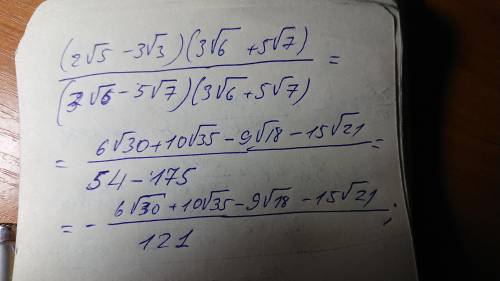 (2√5 - 3√3)(3√6 + 5√7)
/ (3√6 - 5√7)(3√6 + 5√7) =
= (6√30 + 10√35 - 9√18 - 15√21) / (54 - 175) =
= - (6√30 + 10√35 - 9√18 - 15√21) / 121 ;